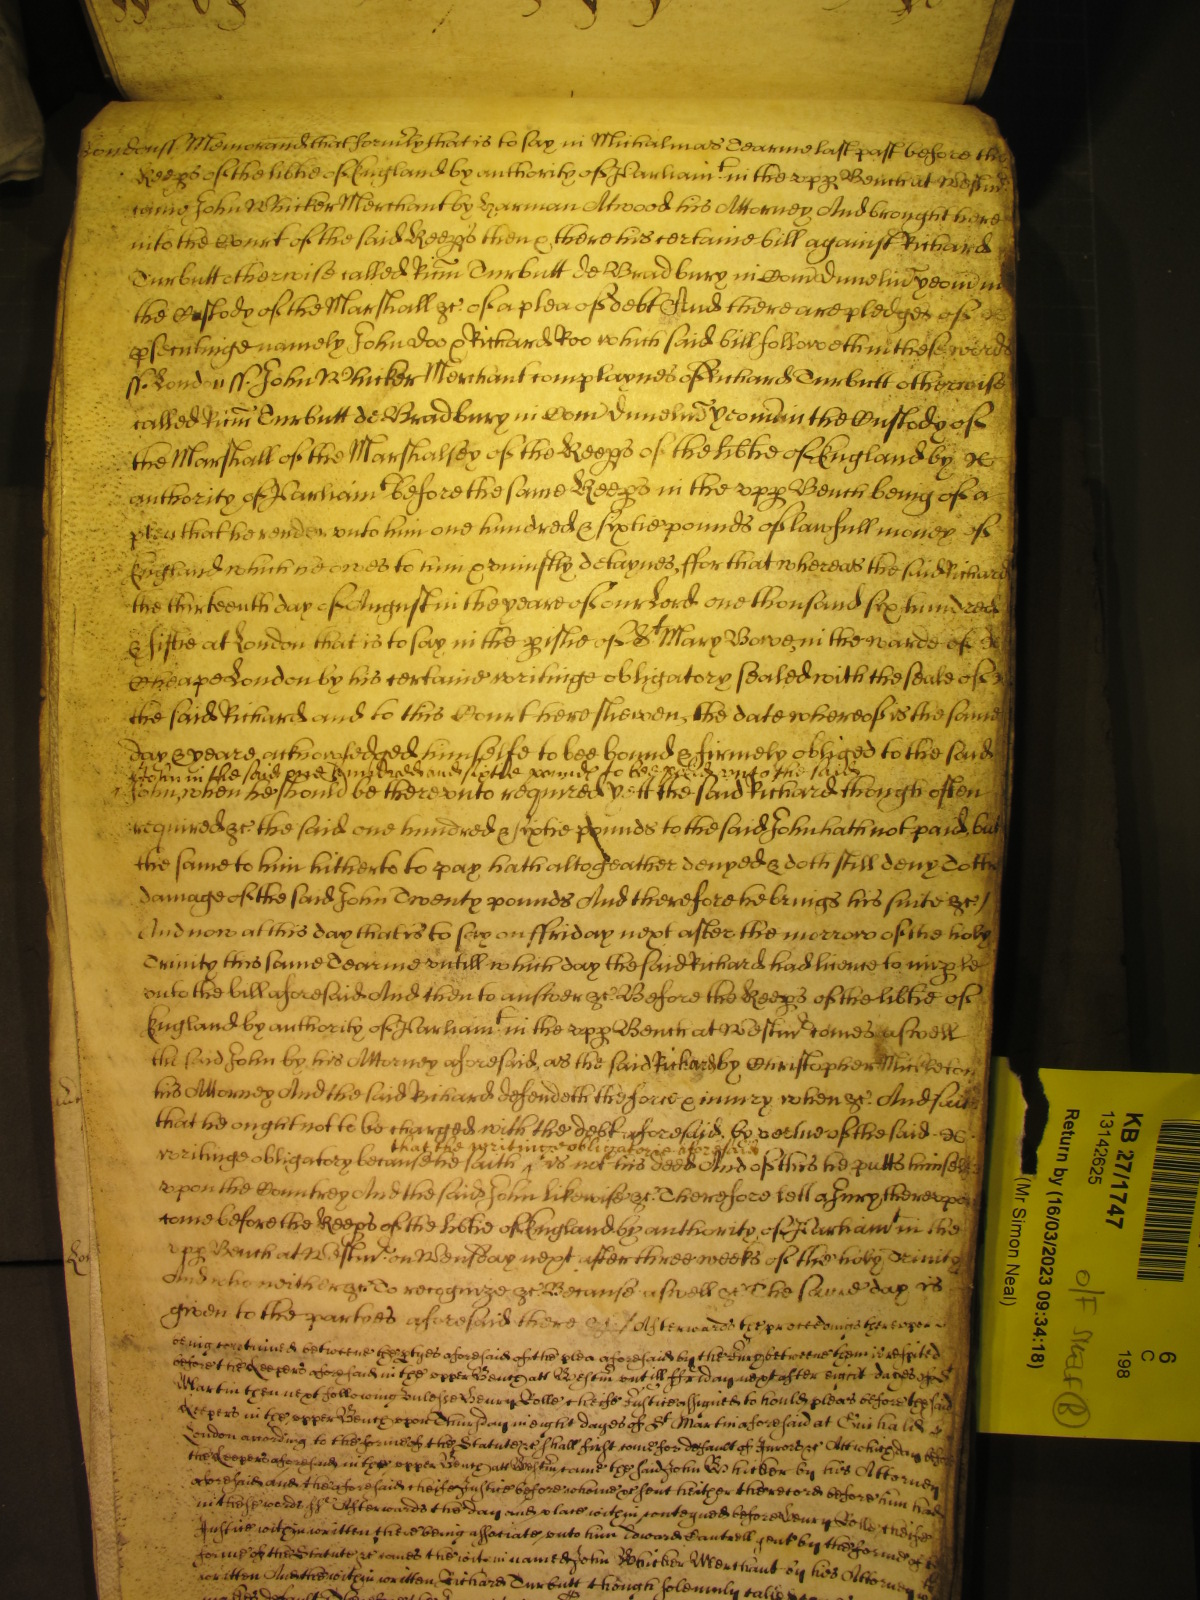 London ss Memorand that formly that is to say in Michalmas Tearme last past before the
Keeps of the libtie of England by authority of Parliamt in the upp Bench at Westm
came John Whicker Merchant by Harman Atwood his Attorney And brought here
into the Court of the said Keeps then & there his certaine bill against Richard
Turbutt otherwise called Ricm Turbutt de Bradbury in Com Dunelm yeom in
the Custody of the Marshall &c of a plea of debt And there are pledges of
psecutinge namely John Doo & Richard Roo which said bill followeth in these words
ss. London ss. John Whicker Merchant complaynes of Richard Turbutt otherwise
called Ricm Turbutt de Bradbury in Com Dunelm yeoman in the Custody of
the Marshall of the Marshalsey of the Keeps of the libtie of England by
authority of Parliamt before the same Keeps in the upp Bench being of a
plea that he render unto him one hundred & sixtie pounds of lawfull money of
England which he owes to him & uniustly detaynes, ffor that whereas the said Richard
the thirteenth day of August in the yeare of our Lord one thousand six hundred
& fiftie at London that is to say in the pishe of St Mary Bowe, in the warde of
Cheape London by his certaine writinge obligatory sealed with the seale of
the said Richard and to this Court here shewen, the date whereof is the same
day & yeare, acknowledged himselfe to bee bound & firmely obliged to the said
John in the said one hundred and sixtie pounds to bee paid unto the said
John, when he should be thereunto required yett the said Richard though often
required &c the said one hundred & sixtie pounds to the said John hath not paid, but
the same to him hitherto to pay hath altogeather denyed & doth still deny To the
damage of the said John Twenty pounds And therefore he brings his suite &c /
And now at this day that is to say on ffriday next after the morrow of the holy
Trinity this same Tearme untill which day the said Richard had licence to imple
unto the bill aforesaid And then to answer &c Before the Keeps of the libtie of
England by authority of Parliamt in the upp Bench at Westm comes aswell
the said John by his Attorney aforesaid, as the said Richard by Christopher Mickleton
his Attorney And the said Richard defendeth the force & iniury when &c. And saith
that he ought not to be charged with the debt aforesaid, by vertue of the said
that the writinge obligatorie aforesaid
writinge obligatory because he saith is not his deed And of this he putts himselfe
upon the Countrey And the said John likewise &c. Therefore lett a Jury, thereupon
come before the Keeps of the libtie of England by authority of Parliamt in the
upp Bench at Westm on Wensday next after three weeks of the holy Trinity
And who neither &c To recognize &c Because aswell &c The same day is
given to the partyes aforesaid there &c / Afterwards the proceedings thereupon
being continued betweene the ptyes aforesaid of the plea aforesaid by the Jury betweene them is respited
before the Keepers aforesaid in the upper Bench att Westm untill ffriday next after eight dayes of St
Martin then next following unlesse Henry Rolle cheife Justice assigned to hould pleas before the said
Keepers in the upper Bench upon Thursday in eight dayes of St Martin aforesaid at Guihald
London according to the forme of the Statute &c shall first come for default of Jurors &c Att which day before
the Keepers aforesaid in the upper Bench att Westm came the said John Whicker by his Attorney
aforesaid and the aforesaid cheife Justice before whome &c sent hether the record before him had
in these words ss Afterwards the day and place within conteyned before Henry Rolle cheife
Justice within written there being associate unto him Edward Cantrell gent by the forme of
forme of the Statute &c comes the within named John Whicker Merchant by his Attorney
written And the within written Richard Turbutt though solemnly called
Lon
6
C
198
KB 27/1747
13142625
Return by (16/03/2023 09:34:18)
(Mr Simon Neal)
O/F